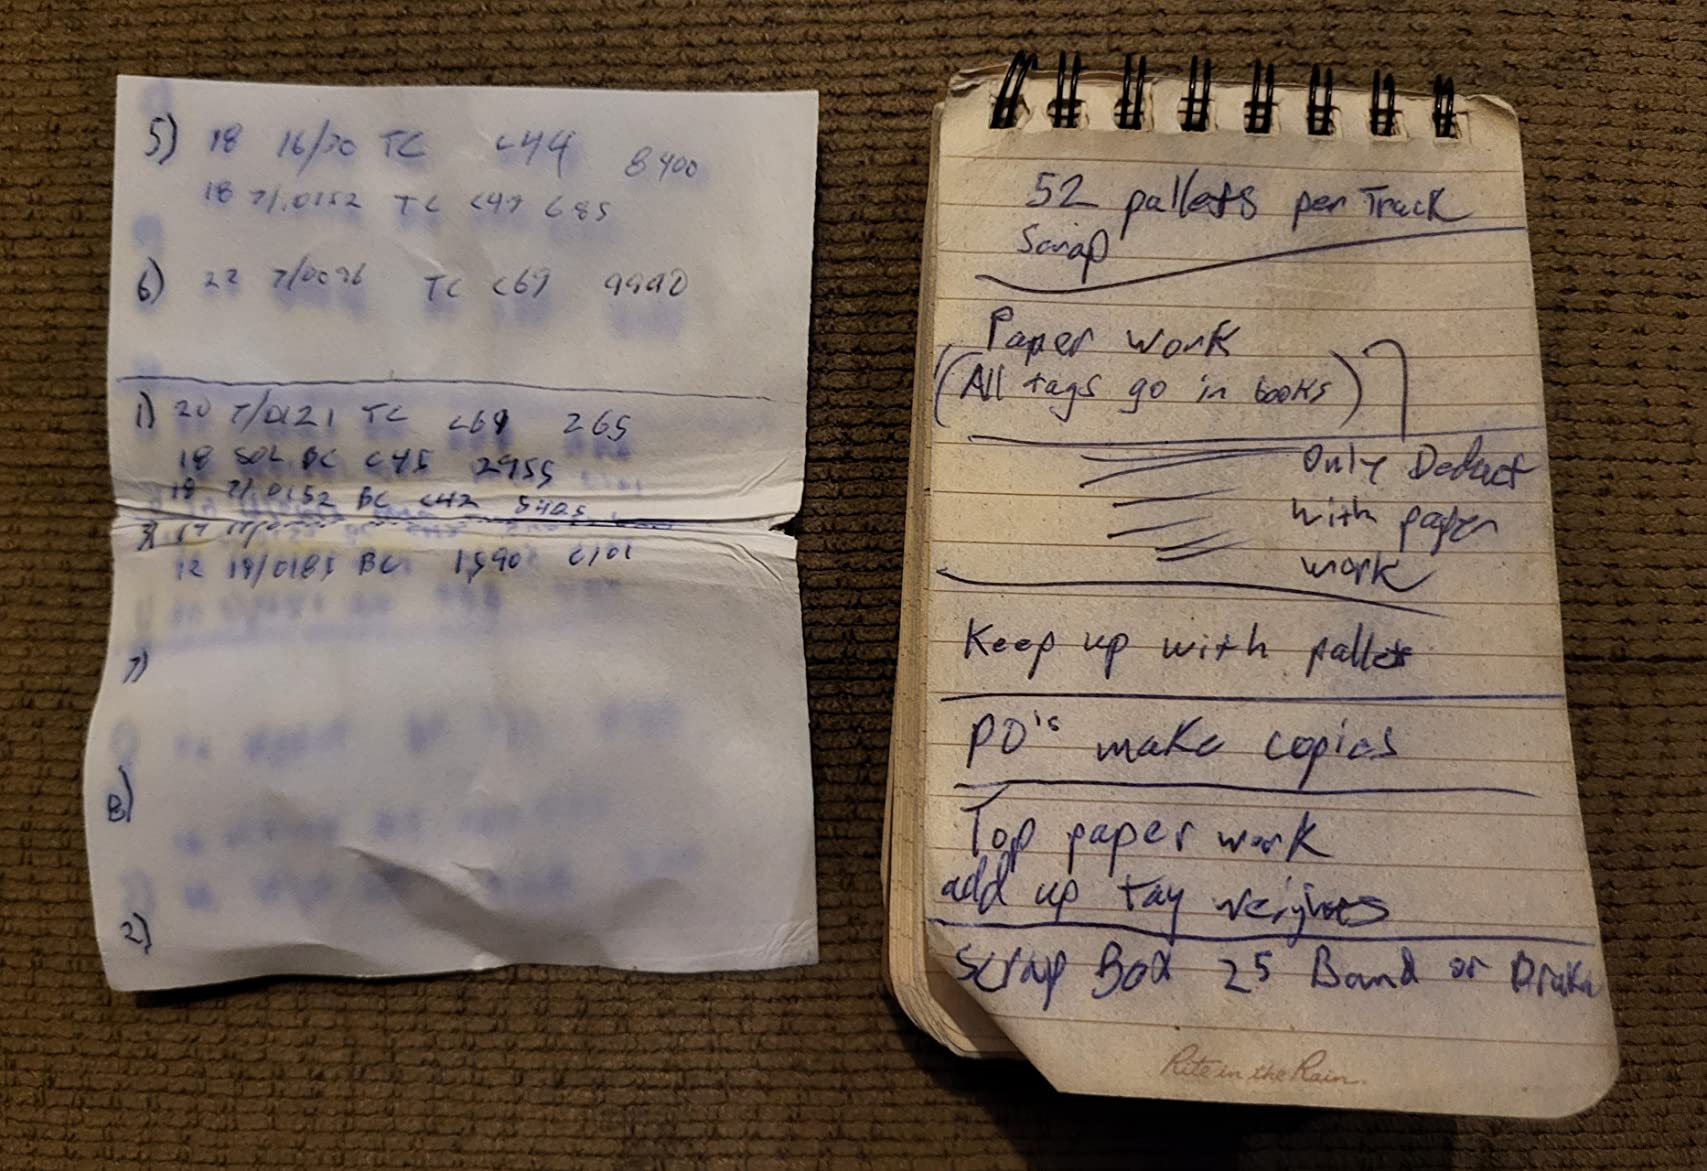 5) 18 16/30 TC C44 8400
18 7/.0152 TC C47 685
6) 22 7/0096 TC C69 9990
1) 20 7/0121 TC C69 265
18 SOL BC C45 2955
18 7/.0152 BC C42 5405
17
12 19/0185 BC 1590 C101
7)
8)
2)
52 pallets per Truck
Scrap
Paper work
(All tags go in books)
Only Deduct
with paper
work
Keep up with pallets
PO's make copies
Top paper work
add up tag weights
Scrap Box 25 Band or
Rite in the Rain